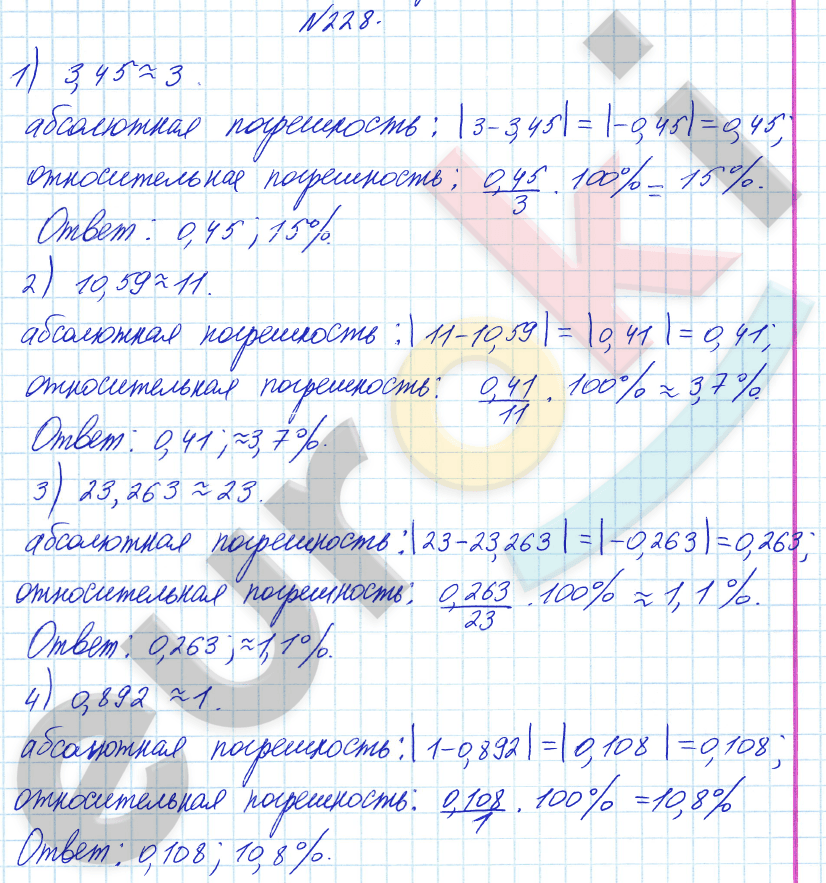 №228.
1) 3,45≈3.
абсолютная погрешность: |3-3,45|=|-0,45|=0,45;
относительная погрешность: 0,45/3 · 100% = 15%.
Ответ: 0,45; 15%.
2) 10,59≈11.
абсолютная погрешность: |11-10,59|=|0,41|=0,41;
относительная погрешность: 0,41/11 · 100% ≈ 3,7%.
Ответ: 0,41; ≈3,7%.
3) 23,263≈23.
абсолютная погрешность: |23-23,263|=|-0,263|=0,263;
относительная погрешность: 0,263/23 · 100% ≈ 1,1%.
Ответ: 0,263; ≈1,1%.
4) 0,892≈1.
абсолютная погрешность: |1-0,892|=|0,108|=0,108;
относительная погрешность: 0,108/1 · 100% =10,8%
Ответ: 0,108; 10,8%.
euroki